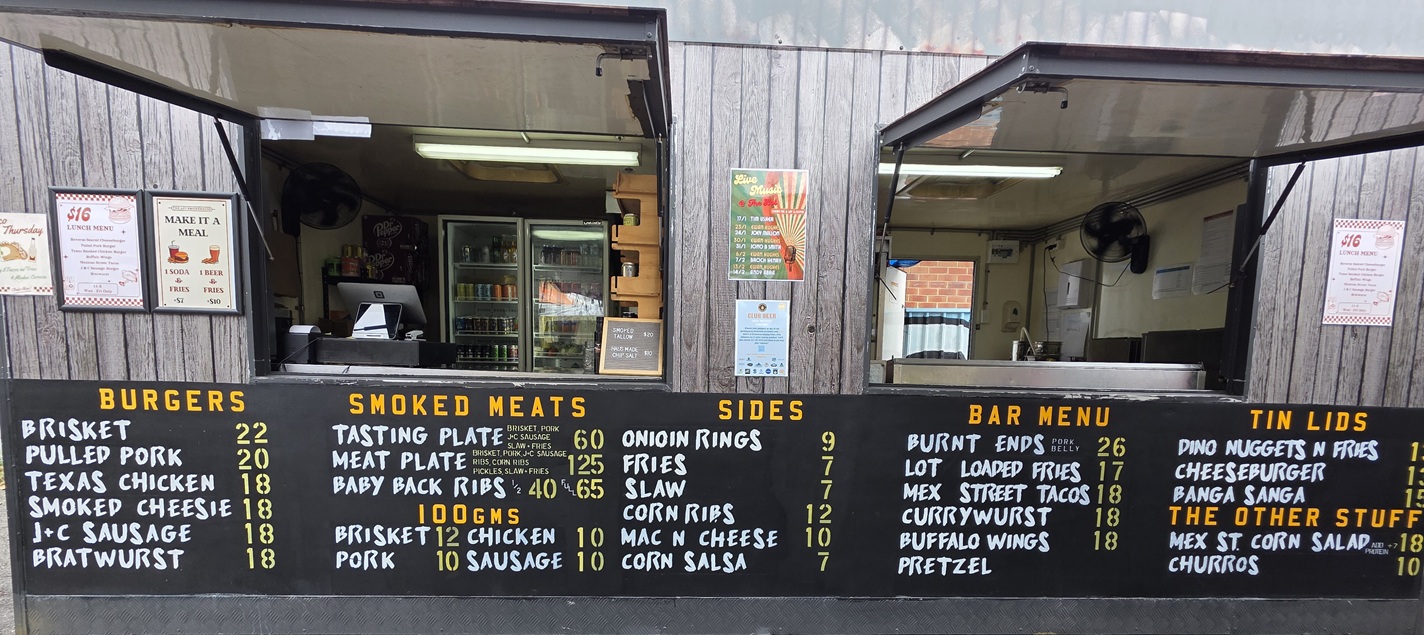 Thursday
$16
LUNCH MENU
MAKE IT A
MEAL
1 SODA
&
FRIES
$7
1 BEER
&
FRIES
$10
Live
Music
SMOKED
TALLOW $20
HAUS MADE
CHIP SALT $10
CLUB BEER
$16
LUNCH MENU
BURGERS
BRISKET 22
PULLED PORK 20
TEXAS CHICKEN 18
SMOKED CHEESIE 18
J+C SAUSAGE 18
BRATWURST 18
SMOKED MEATS
TASTING PLATE BRISKET, PORK J+C SAUSAGE SLAW + FRIES 60
MEAT PLATE BRISKET, PORK, J+C SAUSAGE RIBS, CORN RIBS PICKLES, SLAW + FRIES 125
BABY BACK RIBS 1/2 40 FULL 65
100GMS
BRISKET 12 CHICKEN 10
PORK 10 SAUSAGE 10
SIDES
ONIOIN RINGS 9
FRIES 7
SLAW 7
CORN RIBS 12
MAC N CHEESE 10
CORN SALSA 7
BAR MENU
BURNT ENDS PORK BELLY 26
LOT LOADED FRIES 17
MEX STREET TACOS 18
CURRYWURST 18
BUFFALO WINGS 18
PRETZEL
TIN LIDS
DINO NUGGETS N FRIES
CHEESEBURGER
BANGA SANGA
THE OTHER STUFF
MEX ST. CORN SALAD ADD PROTEIN +7 18
CHURROS 10